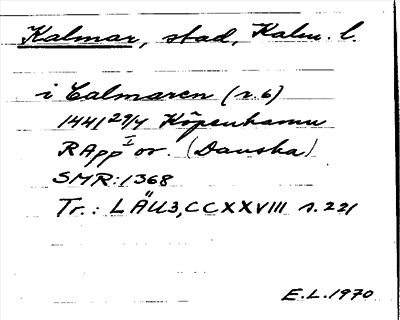 Kalmar, stad, Kalm. l.
i Calmaren (r.6)
1441 29/4 Köpenhamn
RApp I or. (Danska)
SMR: 1368
Tr.: LÄU3, CCXXVIII s. 221
E.L. 1970